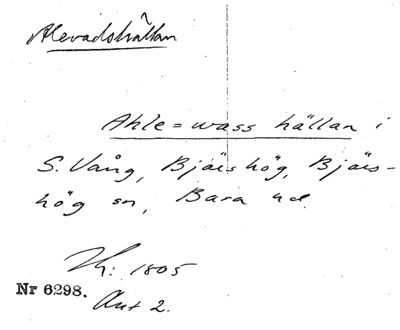 Alevadshällan
Ahle=wass hällan i
S. Vång, Bjäishög, Bjäis-
hög sn, Bara hd.
: 1805
Nr 6298.
Ant 2.